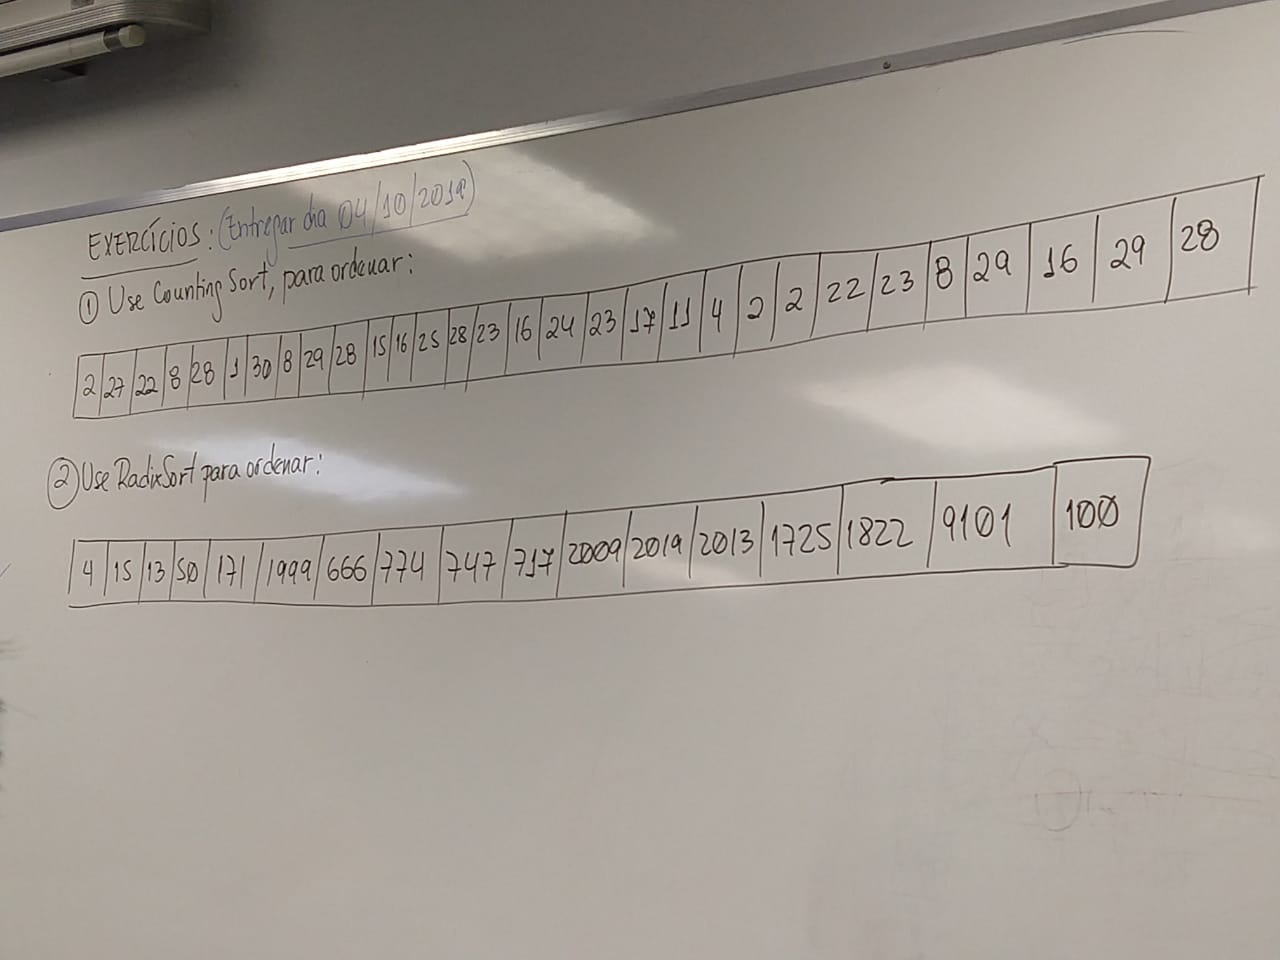 EXERCÍCIOS: (Entregar dia 04/10/2019)
① Use Counting Sort, para ordenar:
2 27 22 8 28 1 30 8 29 28 15 16 25 28 23 16 24 23 17 11 4 2 2 22 23 8 29 16 29 28
② Use RadixSort para ordenar:
4 15 13 50 171 1999 666 774 747 717 2009 2019 2013 1725 1822 9101 100